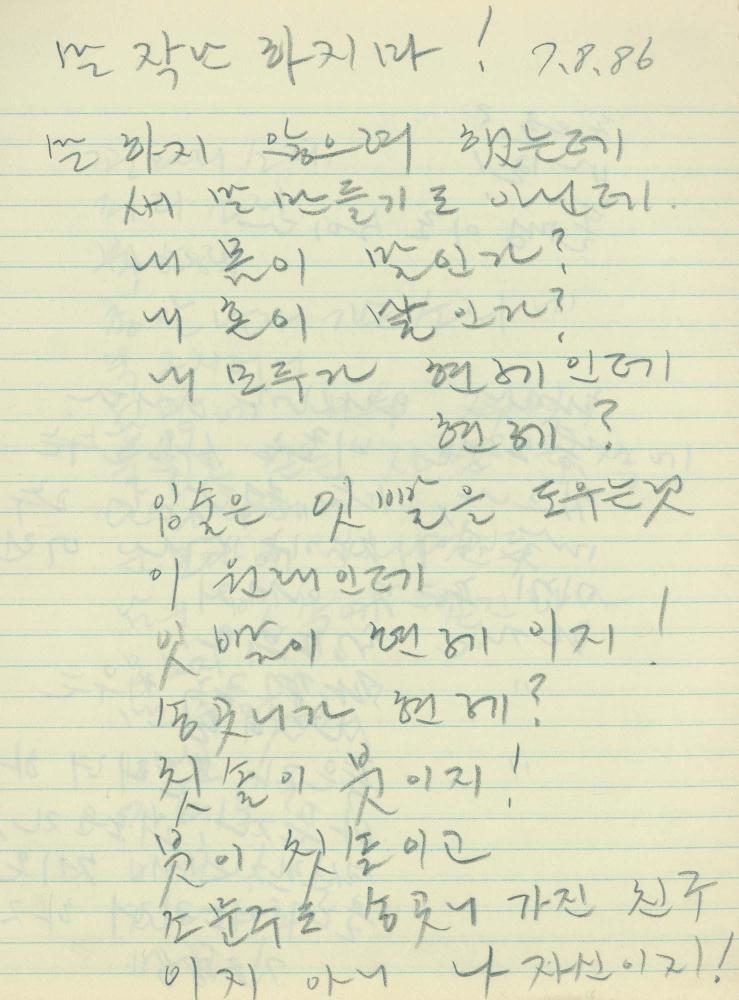 말 작난 하지마! 7.8.86
말 하지 않으려 했는데
새 말 만들기로 아닌데.
내 몸이 말인가?
내 혼이 말인가?
내 모두가 현헤인데
현헤?
입술은 잇빨을 도우는것
이 원래인데
잇빨이 현헤이지!
송곳니가 현헤?
칫솔이 붓이지!
붓이 칫솔이고
조문주는 송곳니 가진 친구
이지 아니 나 자신이지!